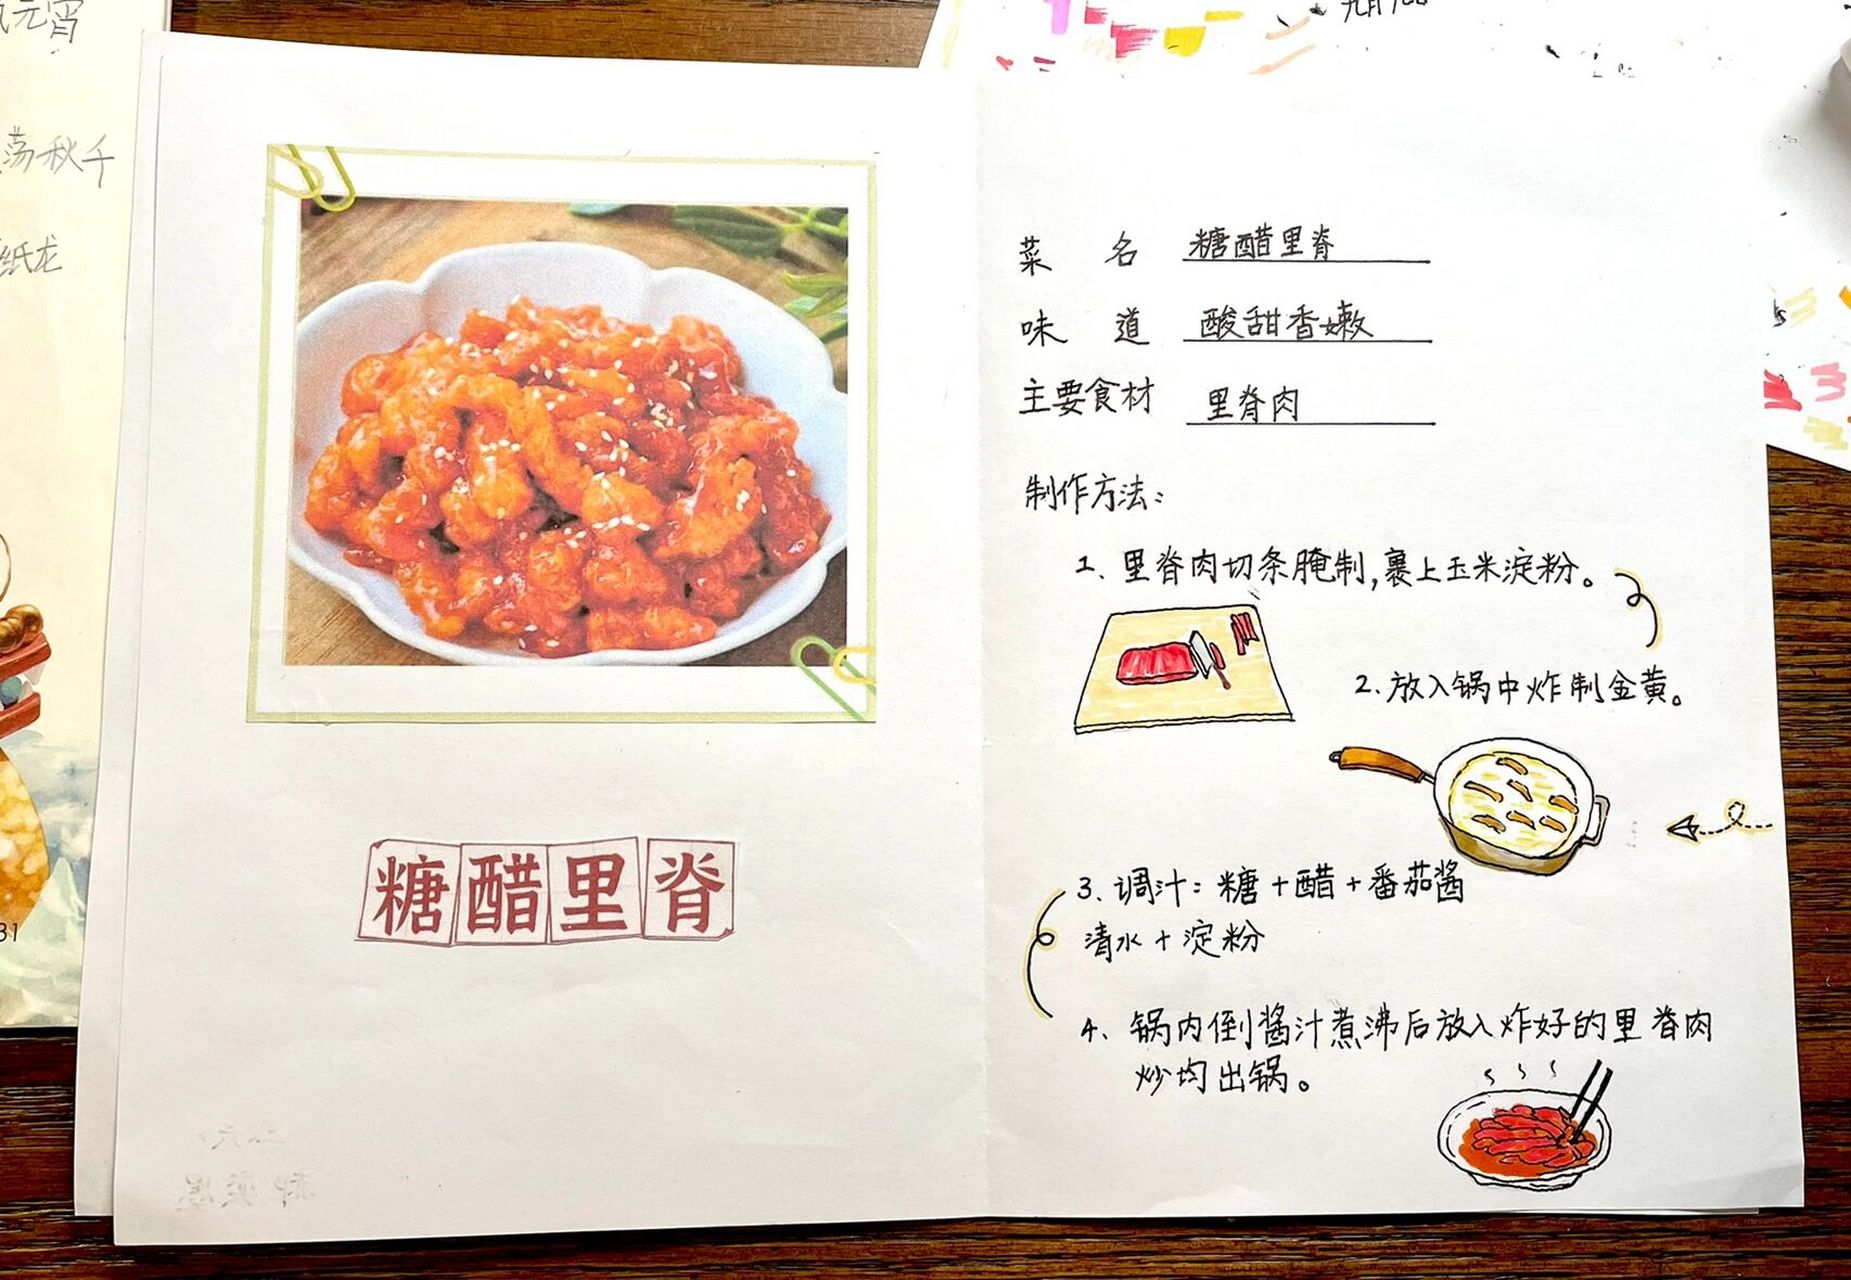 元宵
荡秋千
纸龙
31
糖醋里脊
菜 名 糖醋里脊
味 道 酸甜香嫩
主要食材 里脊肉
制作方法：
1、里脊肉切条腌制,裹上玉米淀粉。
2.放入锅中炸制金黄。
3.调汁：糖+醋+番茄酱
清水+淀粉
4、锅内倒酱汁煮沸后放入炸好的里脊肉
炒均出锅。